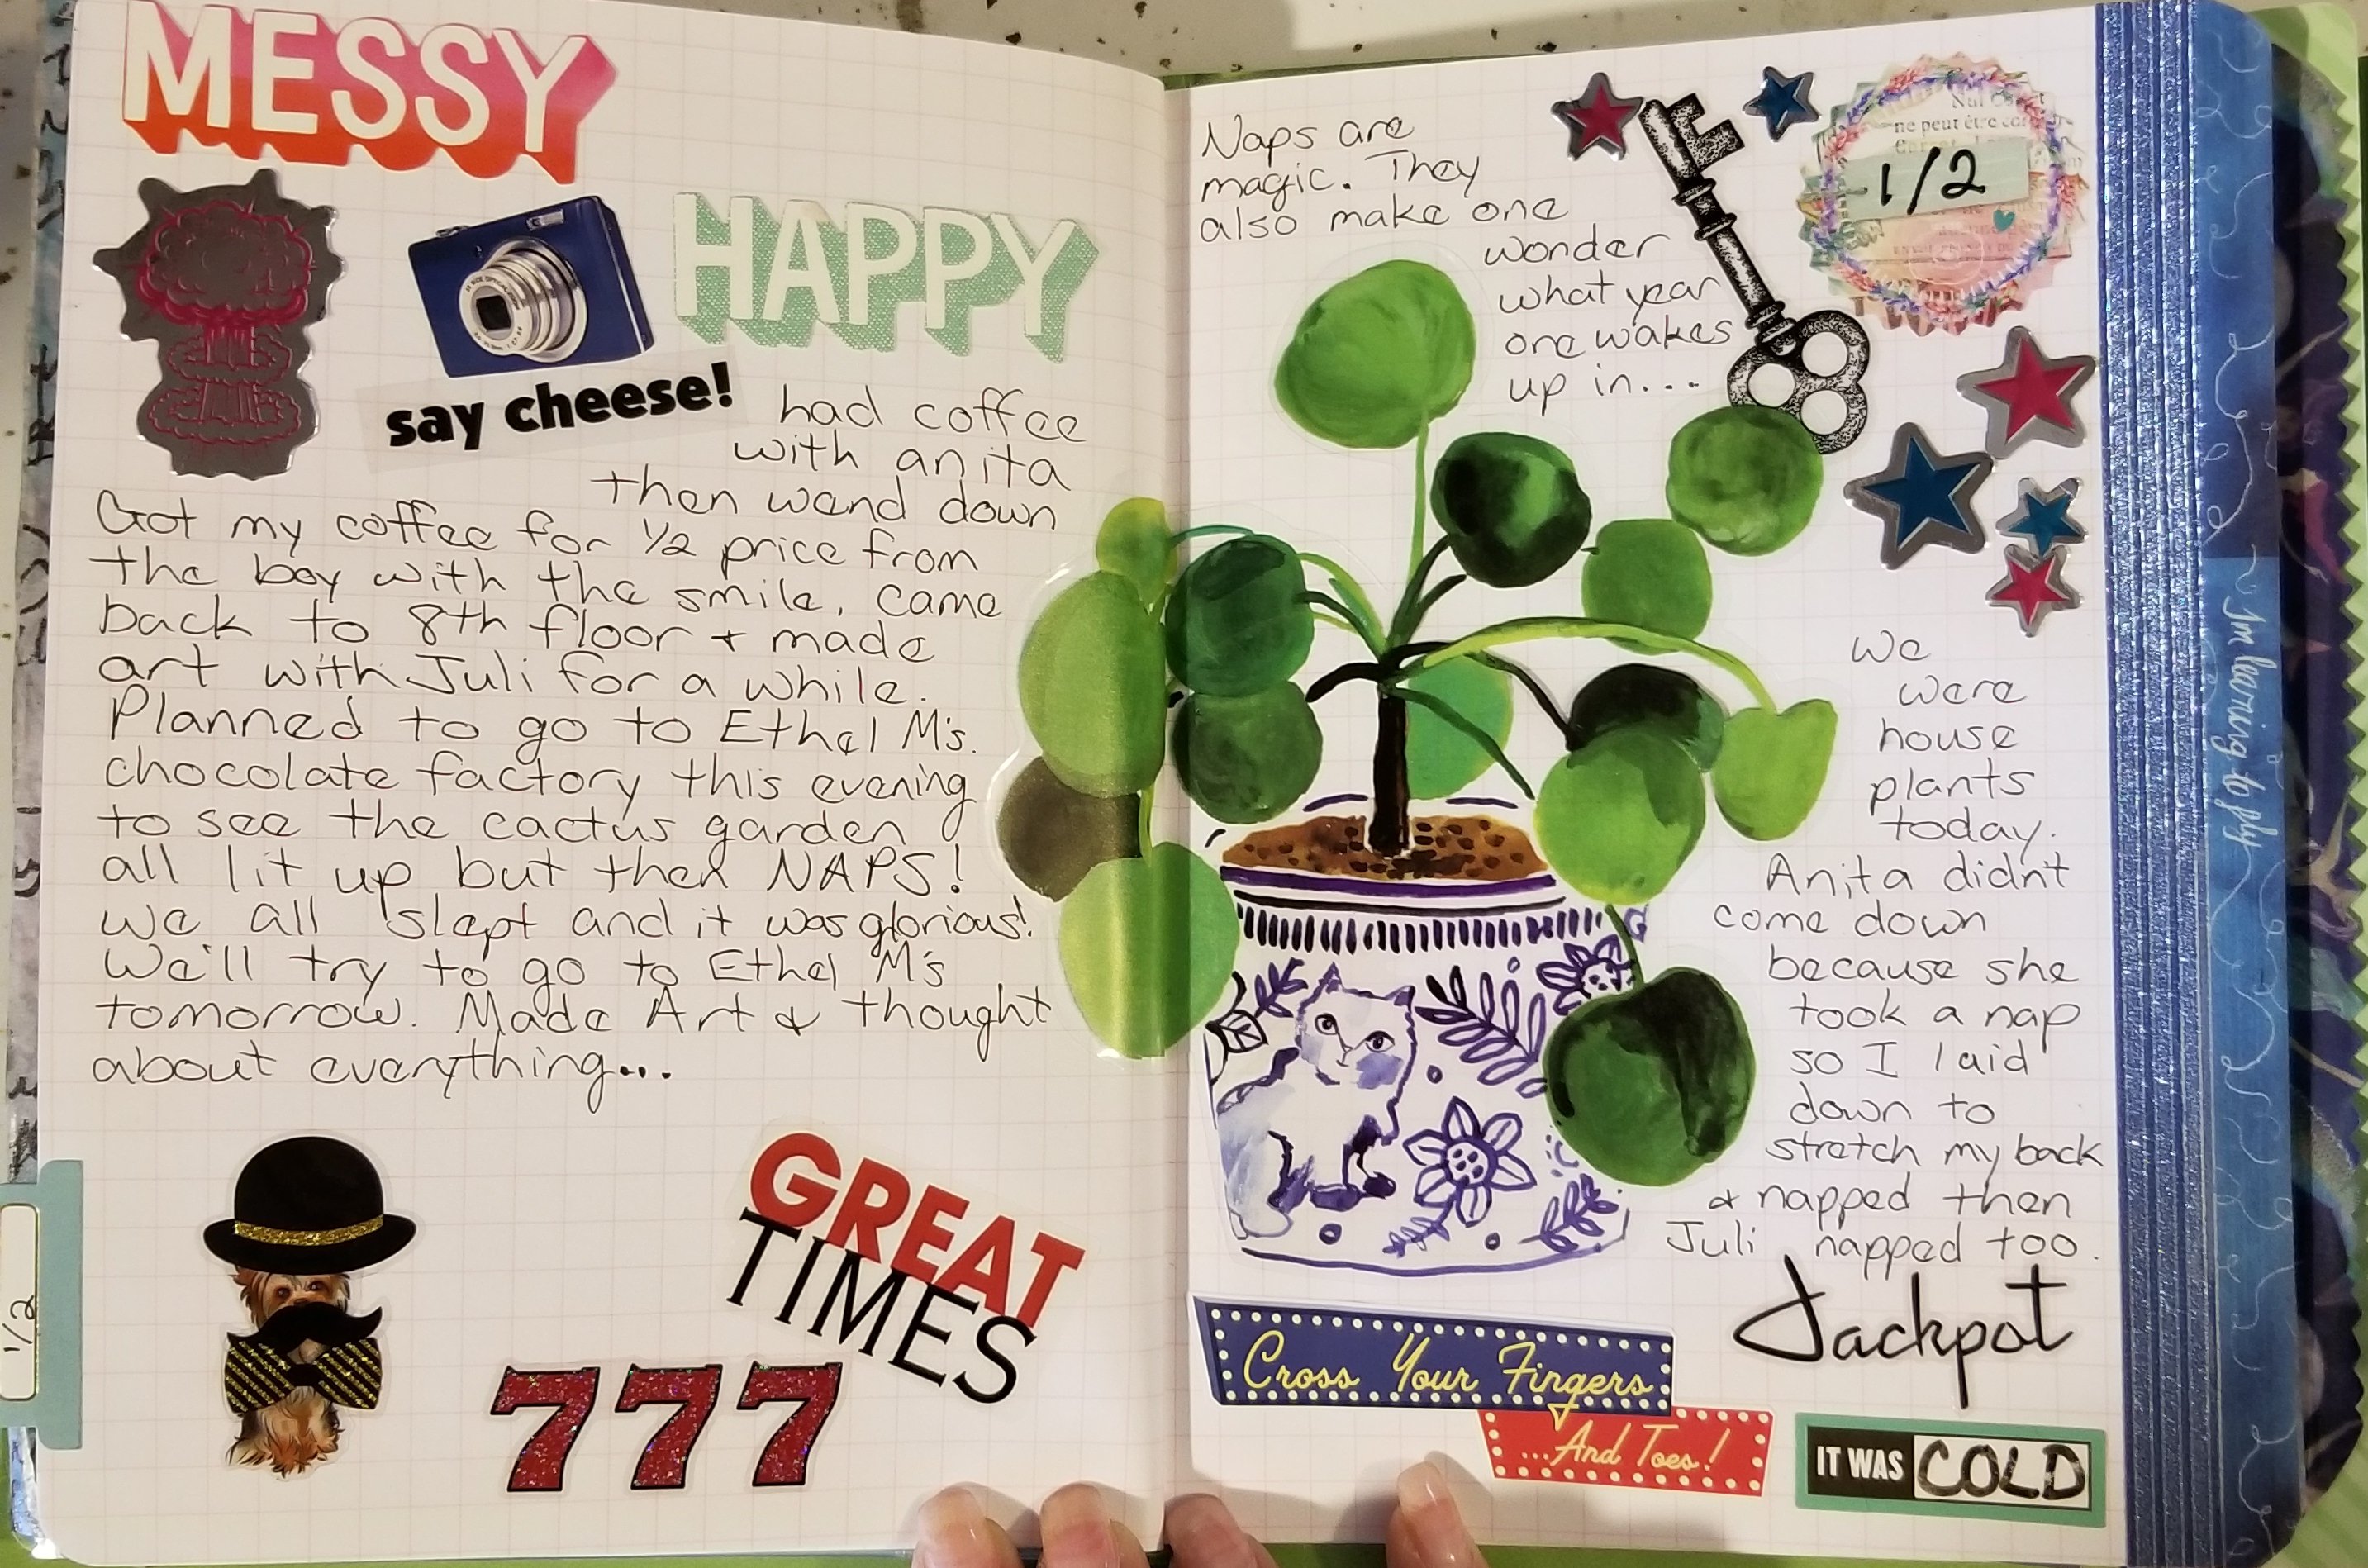 MESSY
HAPPY
say cheese!
had coffee
with anita
then wand down
Got my coffee for 1/2 price from
the boy with the smile, came
back to 8th floor + made
art with Juli for a while.
Planned to go to Ethel M's.
chocolate factory this evening
to see the cactus garden
all lit up but then NAPS!
we all slept and it was glorious!
We'll try to go to Ethel M's
tomorrow. Made Art & thought
about everything...
GREAT
TIMES
777
1/2
Naps are
magic. They
also make one
wonder
what year
one wakes
up in...
ne peut être
1/2
We
were
house
plants
today.
Anita didnt
come down
because she
took a nap
so I laid
down to
stretch my back
& napped then
Juli napped too.
Jackpot
Cross Your Fingers
...And Toes!
IT WAS COLD
I'm learning to fly